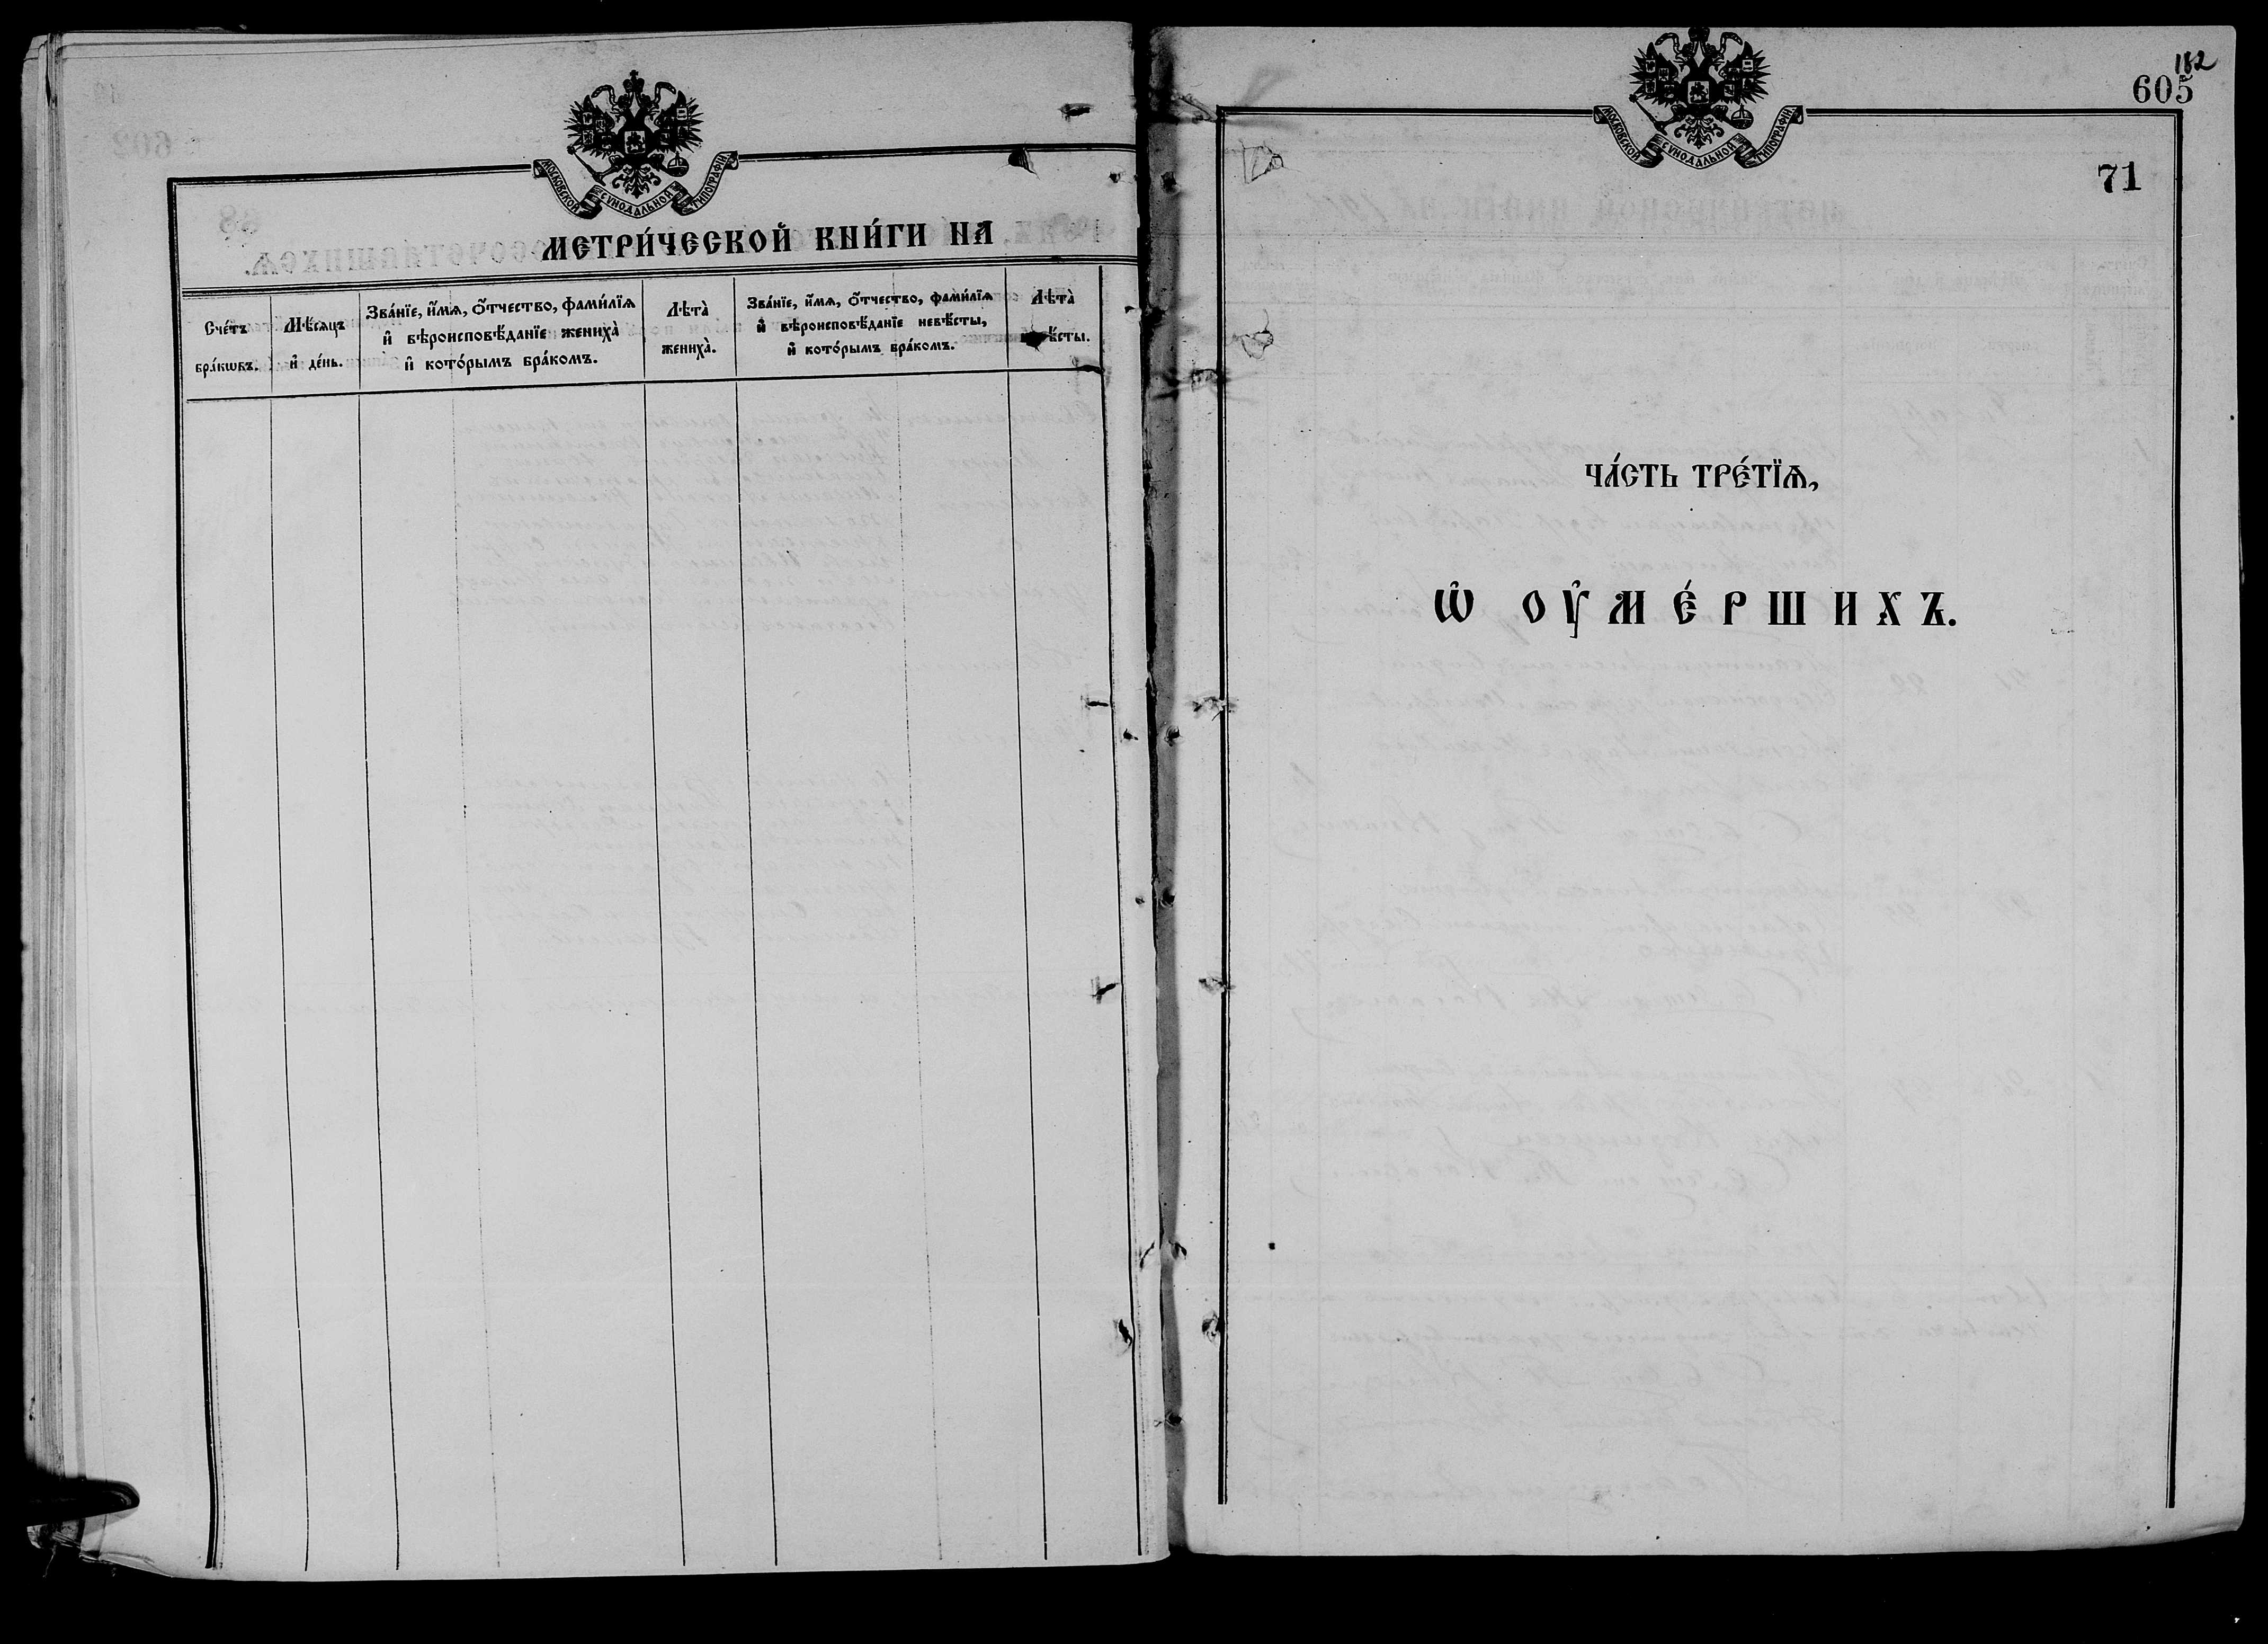 МОСКОВСКОЙ СѴНОДАЛЬНОЙ ТИПОГРАФІИ
МЕТРИ́ЧЕСКОЙ КНИ́ГИ НА
Сче́тъ
бра́кѡвъ.
Мѣ́сяцъ
и҆ де́нь.
Зва́нїе, и҆́мѧ, о҆́тчество, фами́лїѧ
и҆ вѣроисповѣ́данїе женихà
и҆ кото́рымъ бра́комъ.
Лѣтà
женихà.
Зва́нїе, и҆́мѧ, о҆́тчество, фами́лїѧ
и҆ вѣроисповѣ́данїе невѣ́сты,
и҆ кото́рымъ бра́комъ.
Лѣтà
невѣ́сты.
182
605
МОСКОВСКОЙ СѴНОДАЛЬНОЙ ТИПОГРАФІИ
71
ЧА́СТЬ ТРЕ́ТЇѦ,
Ѡ҆ ОУ҆МЕ́РШИХЪ.